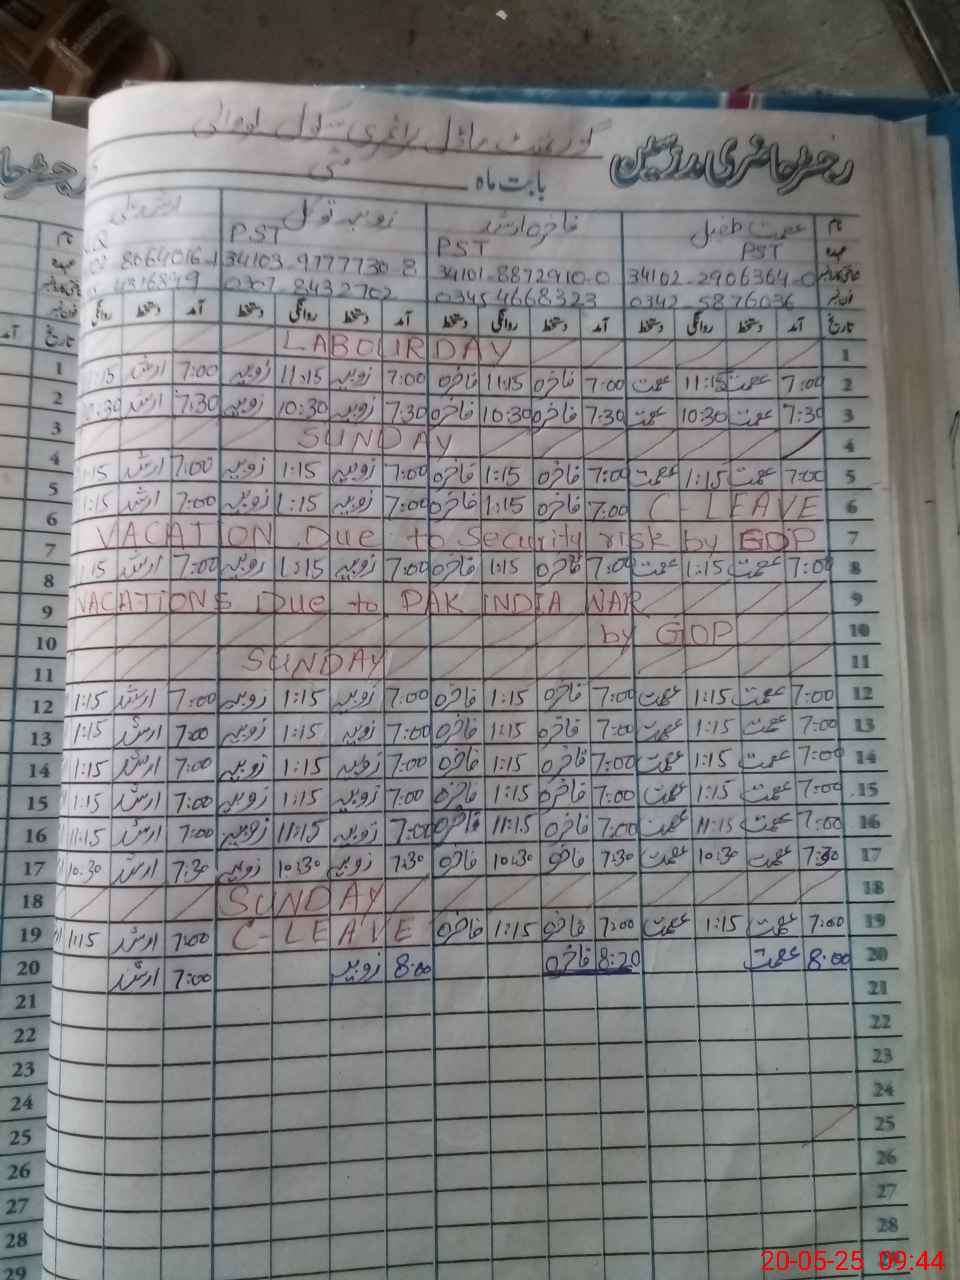 گورنمنٹ ماڈل پرائمری سکول
رجسٹر حاضری مدرسین
بابت ماہ مئی
نام عصمت طفیل فاخرہ ارشد زوبیہ توکل
عہدہ PST PST PST
34102-2906364-0 34101-8872910-0 34103-9777730-8 8064016-1
0342-5876036 03454668323 0307-8432702
تاریخ آمد دستخط روانگی دستخط آمد دستخط روانگی دستخط آمد دستخط روانگی دستخط آمد دستخط روانگی
1 LABOUR DAY 1
2 7:00 عصمت 11:15 عصمت 7:00 فاخرہ 11:15 فاخرہ 7:00 زوبیہ 11:15 زوبیہ 7:00 ارشد 11:15 2
3 7:30 عصمت 10:30 عصمت 7:30 فاخرہ 10:30 فاخرہ 7:30 زوبیہ 10:30 زوبیہ 7:30 ارشد 10:30 3
4 SUNDAY 4
5 7:00 عصمت 1:15 عصمت 7:00 فاخرہ 1:15 فاخرہ 7:00 زوبیہ 1:15 زوبیہ 7:00 ارشد 1:15 5
6 C-LEAVE 7:00 فاخرہ 1:15 فاخرہ 7:00 زوبیہ 1:15 زوبیہ 7:00 ارشد 1:15 6
7 VACATION Due to Security risk by GOP 7
8 7:00 عصمت 1:15 عصمت 7:00 فاخرہ 1:15 فاخرہ 7:00 زوبیہ 1:15 زوبیہ 7:00 ارشد 1:15 8
9 VACATIONS Due to PAK INDIA WAR 9
10 by GOP 10
11 SUNDAY 11
12 7:00 عصمت 1:15 عصمت 7:00 فاخرہ 1:15 فاخرہ 7:00 زوبیہ 1:15 زوبیہ 7:00 ارشد 1:15 12
13 7:00 عصمت 1:15 عصمت 7:00 فاخرہ 1:15 فاخرہ 7:00 زوبیہ 1:15 زوبیہ 7:00 ارشد 1:15 13
14 7:00 عصمت 1:15 عصمت 7:00 فاخرہ 1:15 فاخرہ 7:00 زوبیہ 1:15 زوبیہ 7:00 ارشد 1:15 14
15 7:00 عصمت 1:15 عصمت 7:00 فاخرہ 1:15 فاخرہ 7:00 زوبیہ 1:15 زوبیہ 7:00 ارشد 1:15 15
16 7:00 عصمت 11:15 عصمت 7:00 فاخرہ 11:15 فاخرہ 7:00 زوبیہ 11:15 زوبیہ 7:00 ارشد 11:15 16
17 7:30 عصمت 10:30 عصمت 7:30 فاخرہ 10:30 فاخرہ 7:30 زوبیہ 10:30 زوبیہ 7:30 ارشد 10:30 17
18 SUNDAY 18
19 7:00 عصمت 1:15 عصمت 7:00 فاخرہ 1:15 فاخرہ C-LEAVE 7:00 ارشد 1:15 19
20 8:00 عصمت 8:20 فاخرہ 8:00 زوبیہ 7:00 ارشد 20
21 21
22 22
23 23
24 24
25 25
26 26
27 27
28 28
29 29
20-05-25 09:44